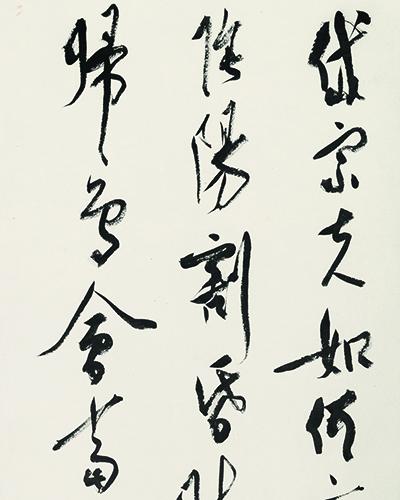 岱宗夫如何
陰陽割昏
歸鳥會當